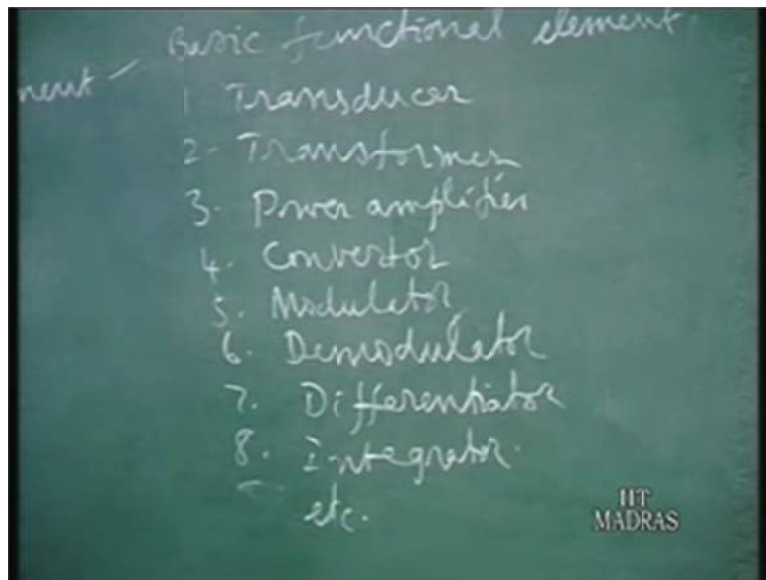 Basic functional element
1. Transducer
2. Transformer
3. Power amplifier
4. Convertor
5. Modulator
6. Demodulator
7. Differentiator
8. Integrator.
etc.
IIT
MADRAS